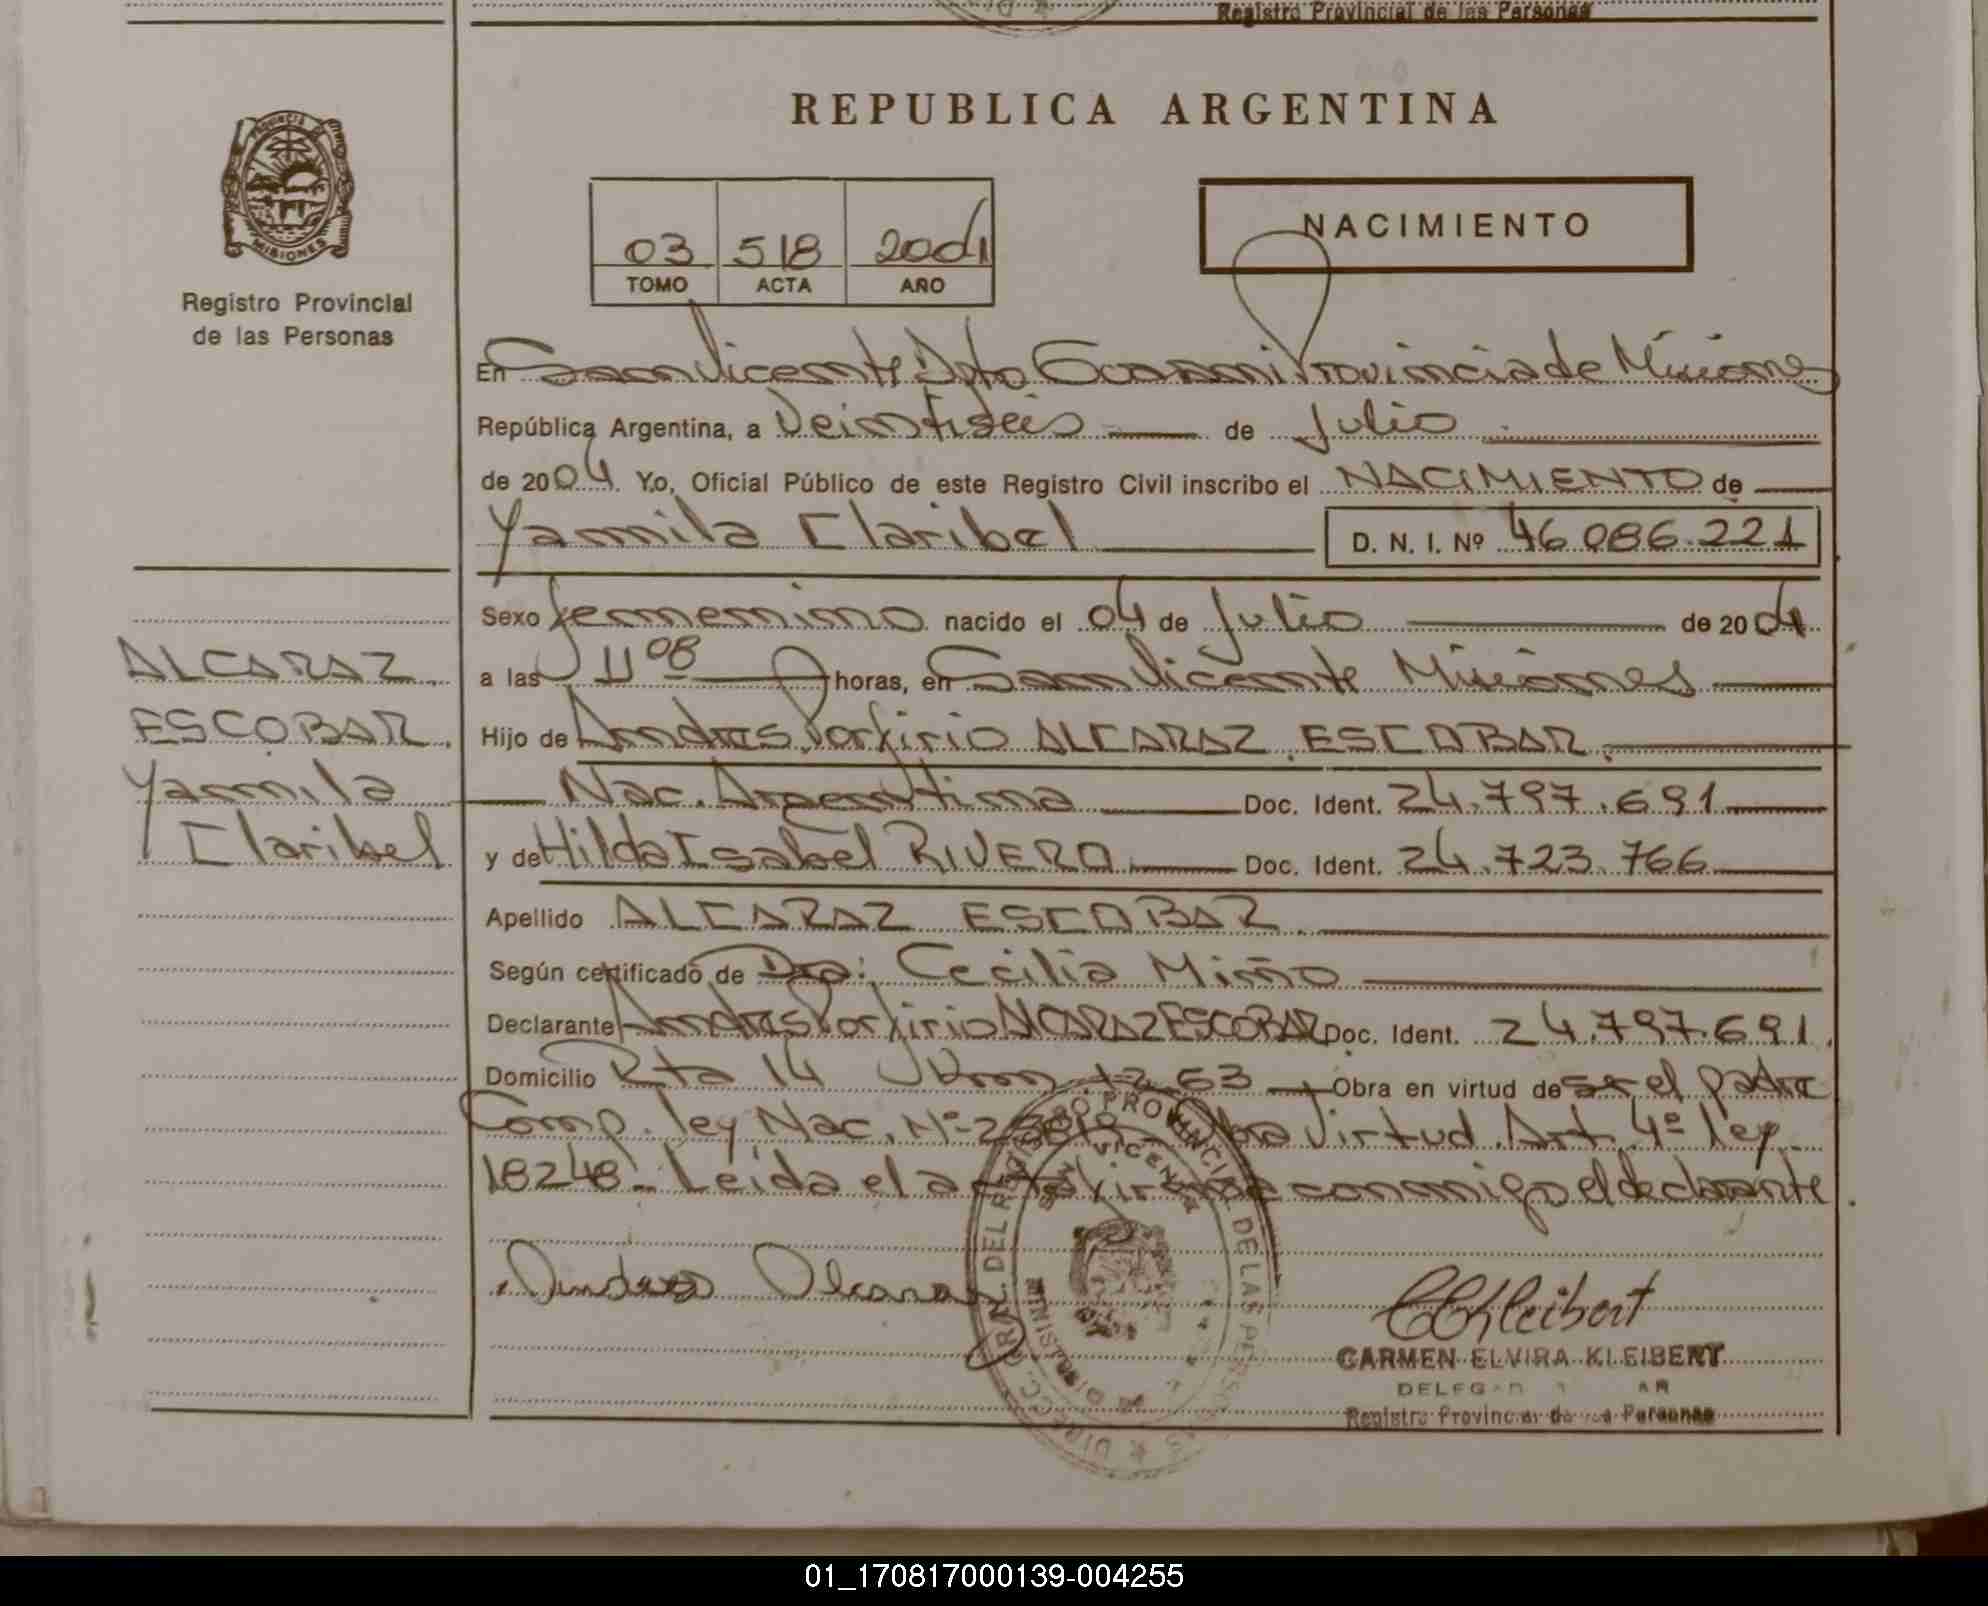 Registro Provincial de las Personas
REPUBLICA ARGENTINA
PROVINCIA DE
MISIONES
Registro Provincial
de las Personas
03 518 2004
TOMO ACTA AÑO
NACIMIENTO
En San Vicente Dpto Guaraní Provincia de Misiones
República Argentina, a Veintiseis de Julio
de 2004 Yo, Oficial Público de este Registro Civil inscribo el NACIMIENTO de
Yamila Claribel D. N. I. Nº 46.086.221
Sexo femenino nacido el 04 de Julio de 2004
a las 11 08 horas, en San Vicente Misiones
Hijo de Andres Porfirio ALCARAZ ESCOBAR
Nac. Argentina Doc. Ident. 24.797.691
y de Hilda Isabel RIVERO Doc. Ident. 24.723.766
Apellido ALCARAZ ESCOBAR
Según certificado de Dra: Cecilia Miño
Declarante Andres Porfirio ALCARAZ ESCOBAR Doc. Ident. 24.797.691
Domicilio Rta 14 Km 1263 Obra en virtud de ser el padre
Comp. ley Nac. Nº Obra Virtud Art 4º ley
18248. Leida el acta firma conmigo el declarante.
ALCARAZ
ESCOBAR
Yamila
Claribel
Andres Alcaraz
CEKleibert
CARMEN ELVIRA KLEIBERT
Registro Provincial de las Personas
DIRECC. GRAL. DEL REGISTRO PROVINCIAL DE LAS PERSONAS
SAN VICENTE
01_170817000139-004255